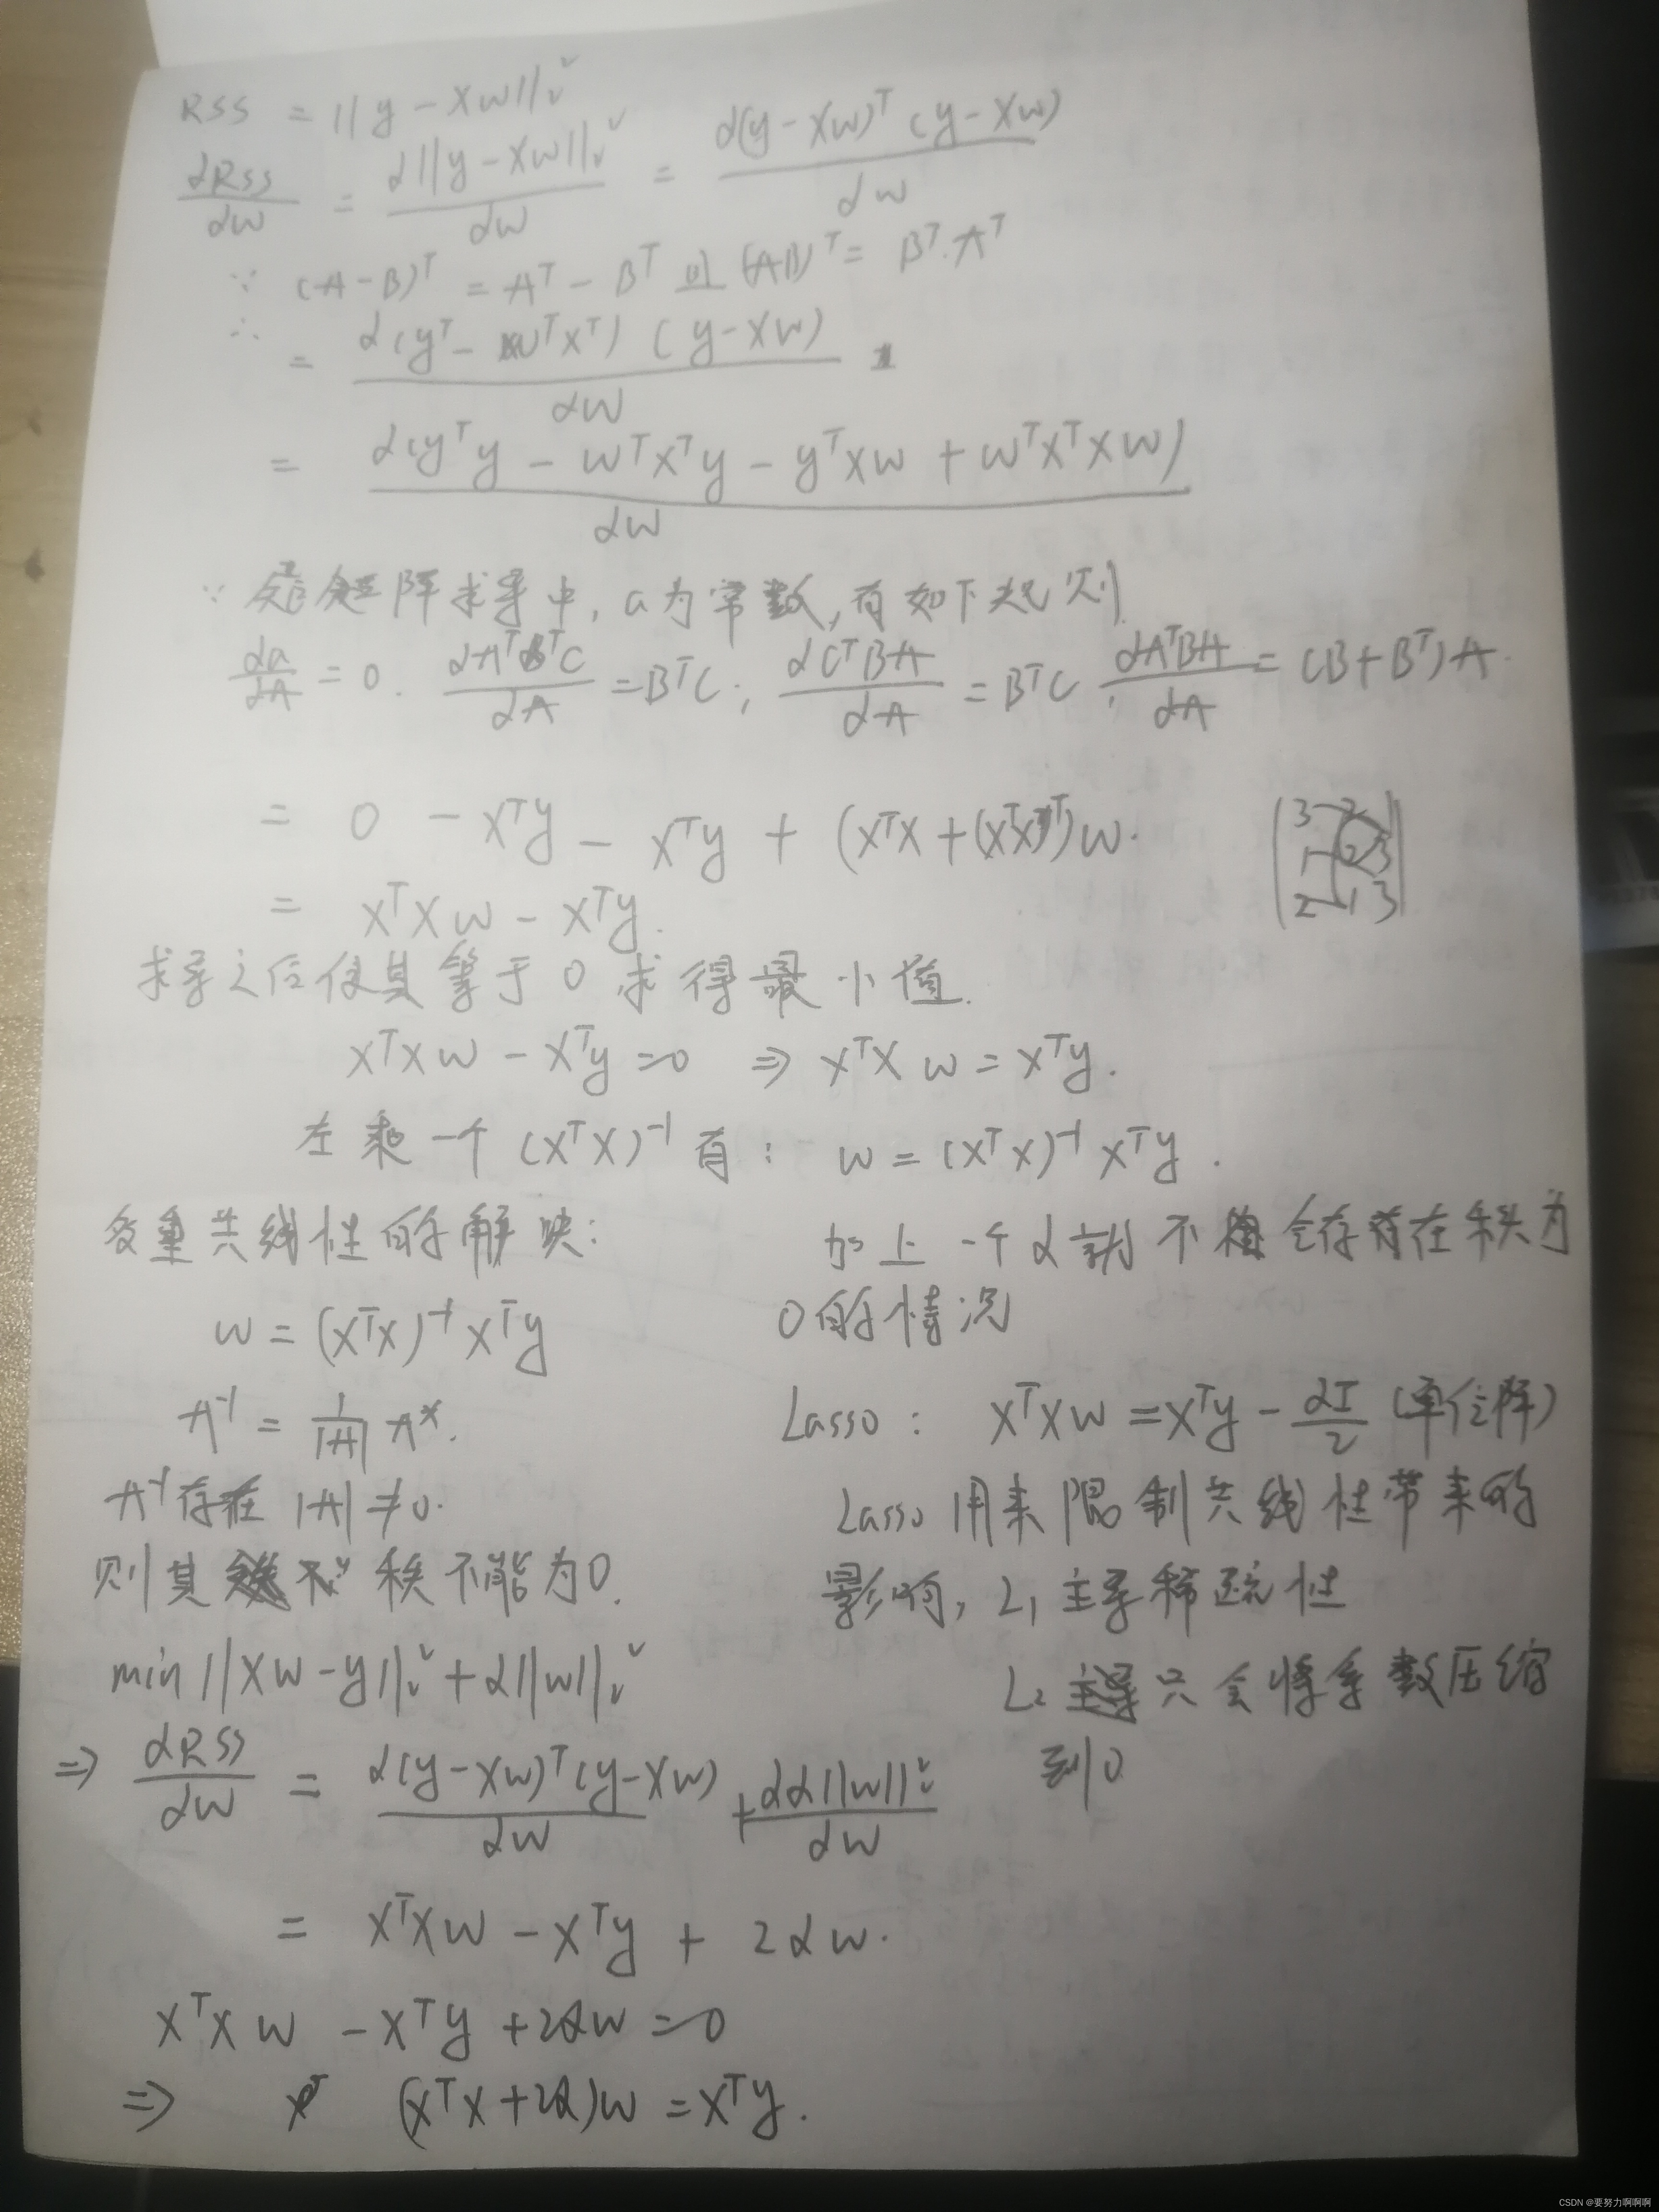 RSS = ||y - Xw||₂²
dRSS/dw = d||y - Xw||₂²/dw = d(y - Xw)ᵀ(y - Xw)/dw
∵ (A - B)ᵀ = Aᵀ - Bᵀ 且 (AB)ᵀ = Bᵀ·Aᵀ
∴ = d(yᵀ - wᵀXᵀ)(y - Xw)/dw
= d(yᵀy - wᵀXᵀy - yᵀXw + wᵀXᵀXw)/dw
∵ 矩阵求导中, a为常数, 有如下规则
da/dA = 0. dAᵀBᵀC/dA = BᵀC; dCᵀBA/dA = BᵀC, dAᵀBA/dA = (B + Bᵀ)A.
= 0 - Xᵀy - Xᵀy + (XᵀX + (XᵀX)ᵀ)w.
3 2
1 2 3
2 1 3
= XᵀXw - Xᵀy.
求导之后使其等于0求得最小值.
XᵀXw - Xᵀy = 0 ⇒ XᵀXw = Xᵀy.
左乘一个 (XᵀX)⁻¹ 有: w = (XᵀX)⁻¹Xᵀy.
多重共线性的解决:
w = (XᵀX)⁻¹Xᵀy
A⁻¹ = 1/|A| A*.
A⁻¹存在 |A| ≠ 0.
则其 积不能为0.
min||Xw - y||₂² + α||w||₂²
⇒ dRSS/dw = d(y - Xw)ᵀ(y - Xw)/dw + dα||w||₂²/dw
= XᵀXw - Xᵀy + 2αw.
XᵀXw - Xᵀy + 2αw = 0
⇒ (XᵀX + 2α)w = Xᵀy.
加上一个α就不会存在积为
0的情况
Lasso: XᵀXw = Xᵀy - αI/2 (单位阵)
Lasso用来限制共线性带来的
影响, L₁主导稀疏性
L₂ 只会将系数压缩
到0
CSDN @要努力啊啊啊